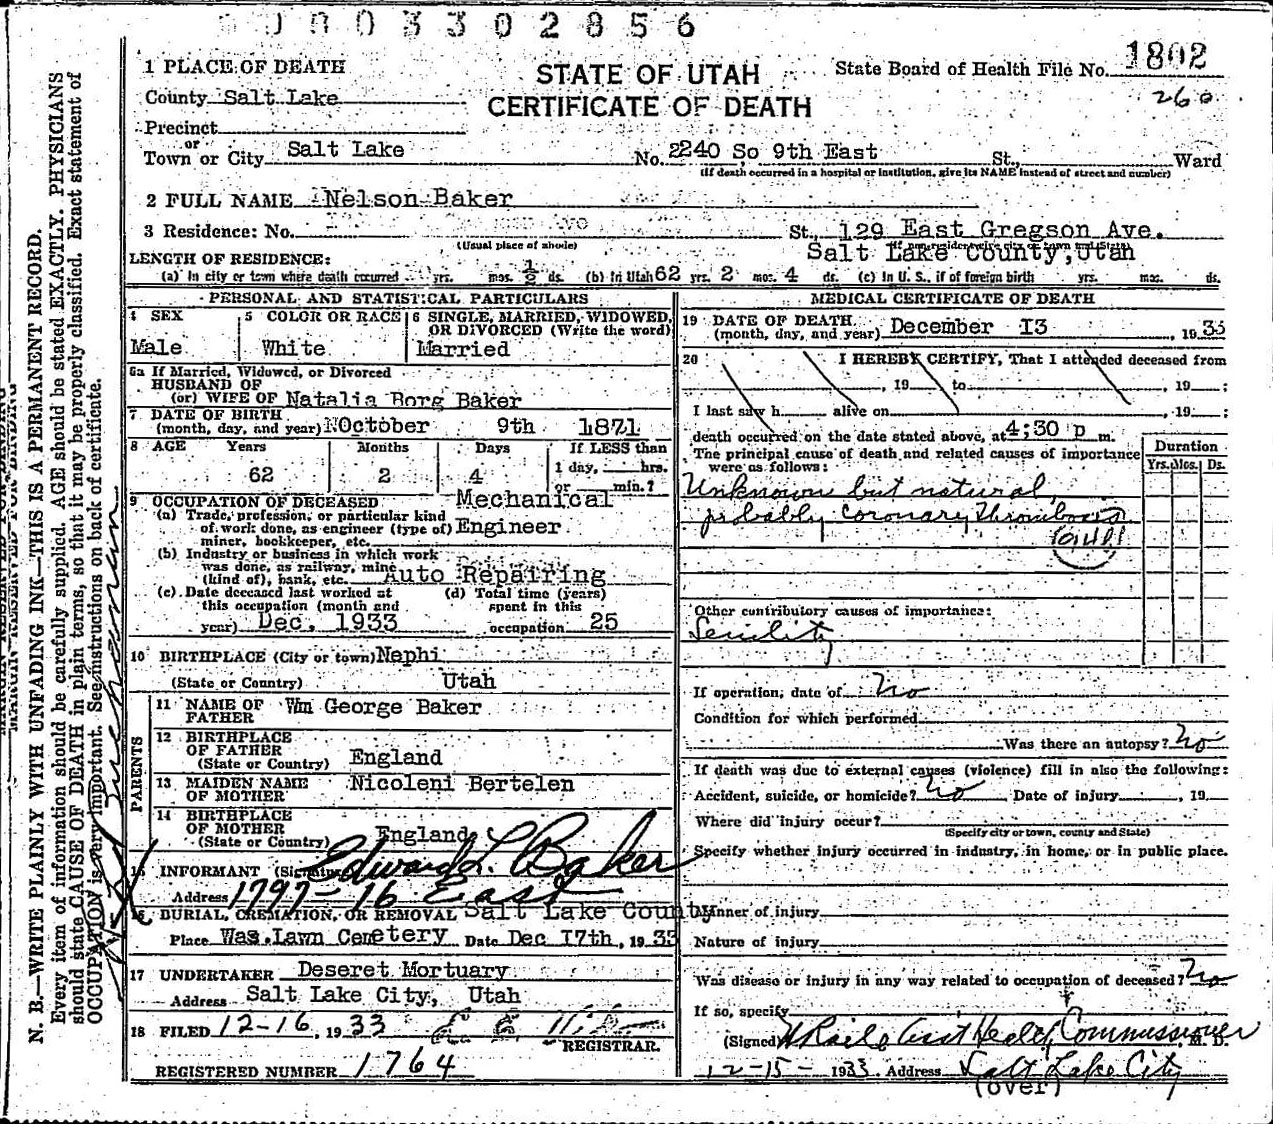 0003302856
1802
260
STATE OF UTAH
CERTIFICATE OF DEATH
State Board of Health File No.
1 PLACE OF DEATH
County Salt Lake
Precinct
or
Town or City Salt Lake No. 2240 So 9th East St., Ward
(If death occurred in a hospital or institution, give its NAME instead of street and number)
2 FULL NAME Nelson Baker
3 Residence: No. St., 129 East Gregson Ave.
(Usual place of abode)
Salt Lake County, Utah
LENGTH OF RESIDENCE:
(a) In city or town where death occurred yrs. mos. 1/2 ds. (b) In Utah 62 yrs. 2 mos. 4 ds. (c) In U. S., if of foreign birth yrs. mos. ds.
PERSONAL AND STATISTICAL PARTICULARS
4 SEX
Male
5 COLOR OR RACE
White
6 SINGLE, MARRIED, WIDOWED, OR DIVORCED (Write the word)
Married
6a If Married, Widowed, or Divorced
HUSBAND OF
(or) WIFE OF Natalia Borg Baker
7 DATE OF BIRTH
(month, day, and year) October 9th 1871
8 AGE Years Months Days If LESS than
1 day, hrs.
or min.?
62 2 4
9 OCCUPATION OF DECEASED
(a) Trade, profession, or particular kind
of work done, as engineer (type of)
miner, bookkeeper, etc.
Mechanical
Engineer
(b) Industry or business in which work
was done, as railway, mine
(kind of), bank, etc. Auto Repairing
(c) Date deceased last worked at
this occupation (month and
year) Dec. 1933
(d) Total time (years)
spent in this
occupation 25
10 BIRTHPLACE (City or town) Nephi
(State or Country) Utah
PARENTS
11 NAME OF
FATHER Wm George Baker
12 BIRTHPLACE
OF FATHER
(State or Country) England
13 MAIDEN NAME
OF MOTHER Nicoleni Bertelen
14 BIRTHPLACE
OF MOTHER
(State or Country) England
15 INFORMANT (Signature) Edward L Baker
Address 1797-16 East
16 BURIAL, CREMATION, OR REMOVAL Salt Lake County
Place Was. Lawn Cemetery Date Dec 17th, 1933
17 UNDERTAKER Deseret Mortuary
Address Salt Lake City, Utah
18 FILED 12-16, 1933
REGISTRAR.
REGISTERED NUMBER 1764
MEDICAL CERTIFICATE OF DEATH
19 DATE OF DEATH
(month, day, and year) December 13 1933
20 I HEREBY CERTIFY, That I attended deceased from
, 19 to , 19 ;
I last saw h alive on , 19 ;
death occurred on the date stated above, at 4;30 p m.
The principal cause of death and related causes of importance
were as follows:
Duration
Yrs. Mos. Ds.
Unknown but natural,
probably coronary thrombosis
Other contributory causes of importance:
Senility
If operation, date of no
Condition for which performed
Was there an autopsy? no
If death was due to external causes (violence) fill in also the following:
Accident, suicide, or homicide? no Date of injury , 19
Where did injury occur?
(Specify city or town, county and State)
Specify whether injury occurred in industry, in home, or in public place.
Manner of injury
Nature of injury
Was disease or injury in any way related to occupation of deceased? no
If so, specify
(Signed) Asst Health Commissioner M. D.
12-15- 1933 Address Salt Lake City
(over)
N. B.—WRITE PLAINLY WITH UNFADING INK—THIS IS A PERMANENT RECORD.
Every item of information should be carefully supplied. AGE should be stated EXACTLY. PHYSICIANS
should state CAUSE OF DEATH in plain terms, so that it may be properly classified. Exact statement of
OCCUPATION is very important. See instructions on back of certificate.